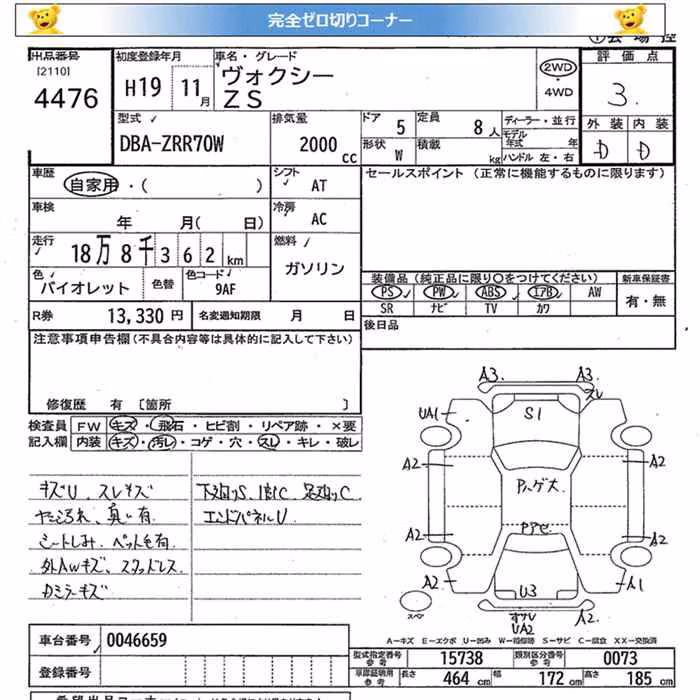 完全ゼロ切りコーナー
出品番号
[2110]
4476
初度登録年月
H19 11月
車名・グレード
ヴォクシー
ZS
2WD
4WD
評価点
3.
外装 内装
D D
型式
DBA-ZRR70W
排気量
2000 cc
ドア 5
定員 8人
形状 W
積載 kg
ディーラー・並行
モデル年式 年
ハンドル 左・右
車歴
自家用・( )
シフト
AT
セールスポイント (正常に機能するものに限ります)
車検
年 月( 日)
冷房
AC
走行
18万8千362km
燃料
ガソリン
色
バイオレット
色替
色コード
9AF
装備品(純正品に限り○をつけてください)
新車保証書
PS PW ABS エアB AW
有・無
SR ナビ TV カワ
R券 13,330円
名変通知期限 月 日
後日品
注意事項申告欄(不具合内容等は具体的に記入して下さい)
修復歴 有 [箇所 ]
検査員 FW キズ・飛石・ヒビ割・リペア跡・×要
記入欄 内装 キズ・汚レ・コゲ・穴・スレ・キレ・破レ
キズU、スレキズ
シートしみ、ペット毛有
外AWキズ、スタッドレス
カミラーキズ
下廻りS、
足廻りC
エンドパネルU
A3. A3.
スレ
UA1
S1
A2 A2
A2 A2
A2
U3
A1
UA2
A2.
スペア
A-キズ E-エクボ U-凹み W-補修跡 S-サビ C-腐食 XX-交換済
車台番号 0046659
登録番号
型式指定番号 参考 15738
類別区分番号 参考 0073
車庫証明用 参考 長さ 464 cm 幅 172 cm 高さ 185 cm